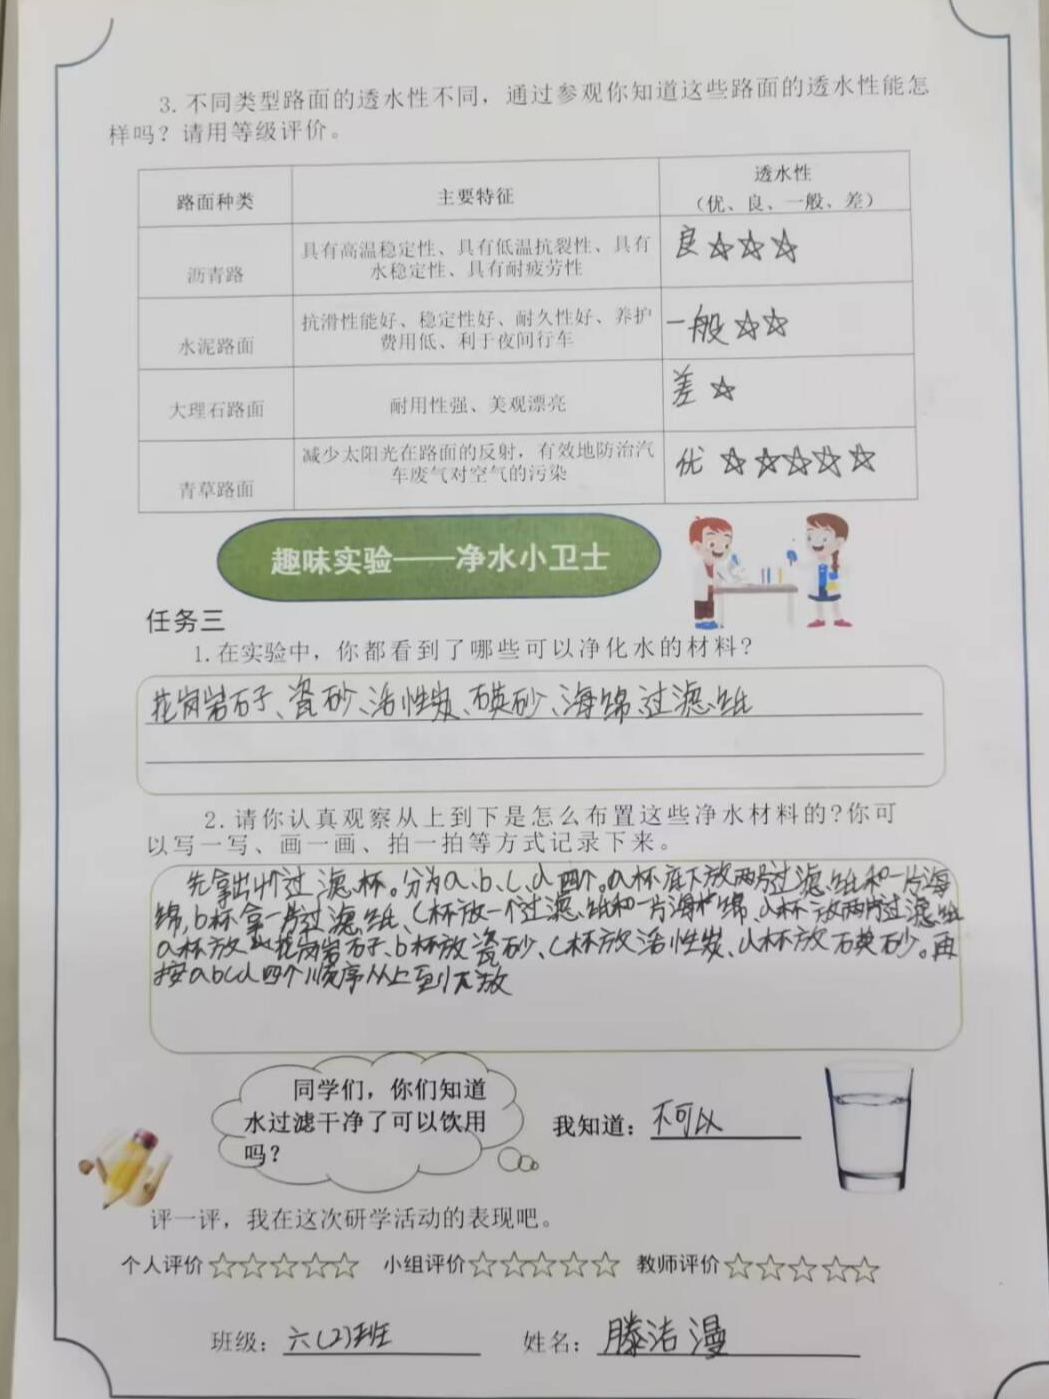 3.不同类型路面的透水性不同，通过参观你知道这些路面的透水性能怎
样吗？请用等级评价。
路面种类 主要特征 透水性
（优、良、一般、差）
沥青路 具有高温稳定性、具有低温抗裂性、具有
水稳定性、具有耐疲劳性 良☆☆☆
水泥路面 抗滑性能好、稳定性好、耐久性好、养护
费用低、利于夜间行车 一般☆☆
大理石路面 耐用性强、美观漂亮 差☆
青草路面 减少太阳光在路面的反射，有效地防治汽
车废气对空气的污染 优☆☆☆☆☆
趣味实验——净水小卫士
任务三
1.在实验中，你都看到了哪些可以净化水的材料？
花岗岩石子、瓷砂、活性炭、石英砂、海绵、过滤纸
2.请你认真观察从上到下是怎么布置这些净水材料的?你可
以写一写、画一画、拍一拍等方式记录下来。
先拿出4个过滤杯。分为a、b、c、d四个。a杯底下放两片过滤纸和一片海
绵，b杯拿一片过滤纸、c杯放一个过滤纸和一片海绵、d杯放两片过滤纸
a杯放花岗岩石子、b杯放瓷砂、c杯放活性炭、d杯放石英砂。再
按abcd四个顺序从上到下放
同学们，你们知道
水过滤干净了可以饮用
吗？
我知道：不可以
评一评，我在这次研学活动的表现吧。
个人评价☆☆☆☆☆ 小组评价☆☆☆☆☆ 教师评价☆☆☆☆☆
班级：六(2)班 姓名：滕洁漫